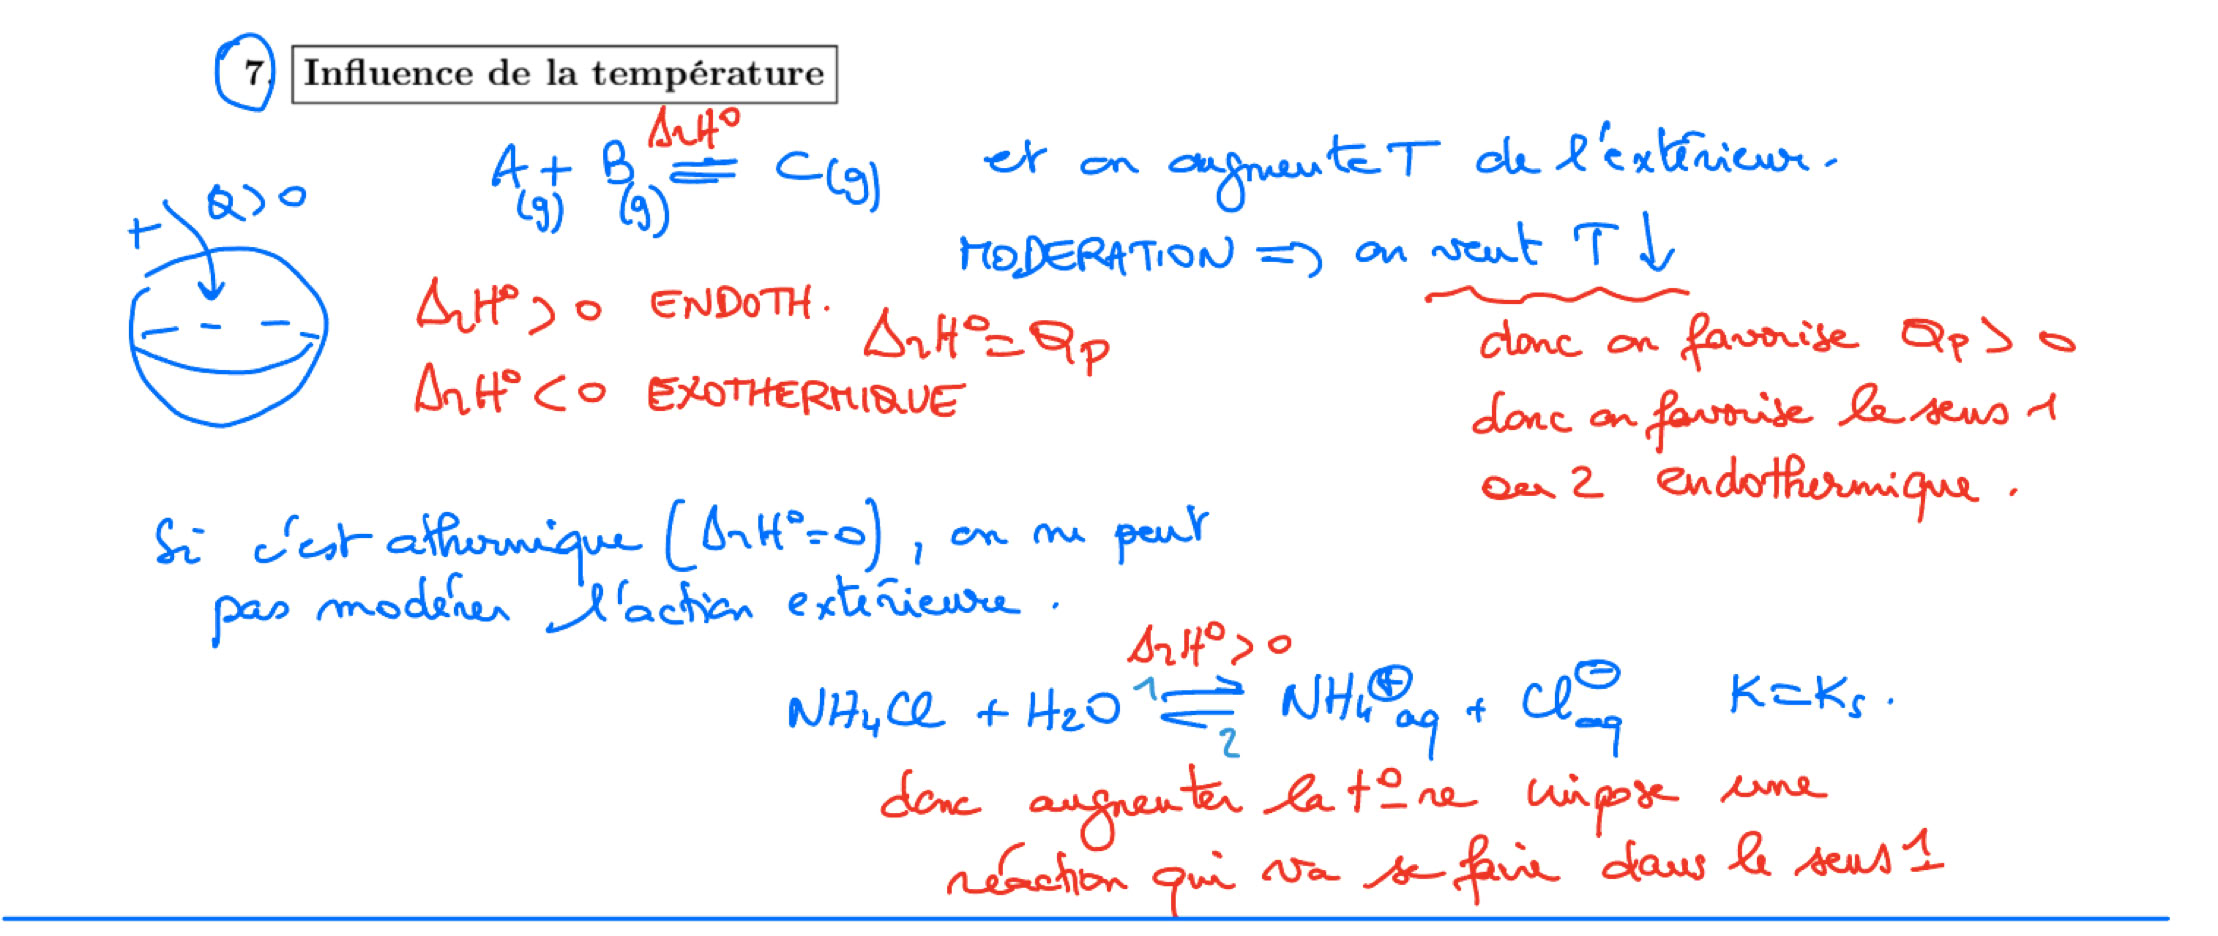 7. Influence de la température
A(g) + B(g) ⇌ C(g) et on augmente T de l'extérieur.
ΔrH°
Q > 0
+
MODERATION => on veut T ↓
ΔrH° > 0 ENDOTH.
ΔrH° = Qp
ΔrH° < 0 EXOTHERMIQUE
donc on favorise Qp > 0
donc on favorise le sens 1
ou 2 endothermique.
Si c'est athermique (ΔrH° = 0), on ne peut
pas modérer l'action extérieure.
ΔrH° > 0
NH4Cl + H2O 1 ⇌ 2 NH4⊕aq + Cl⊖aq K = Ks.
donc augmenter la t°re impose une
réaction qui va se faire dans le sens 1